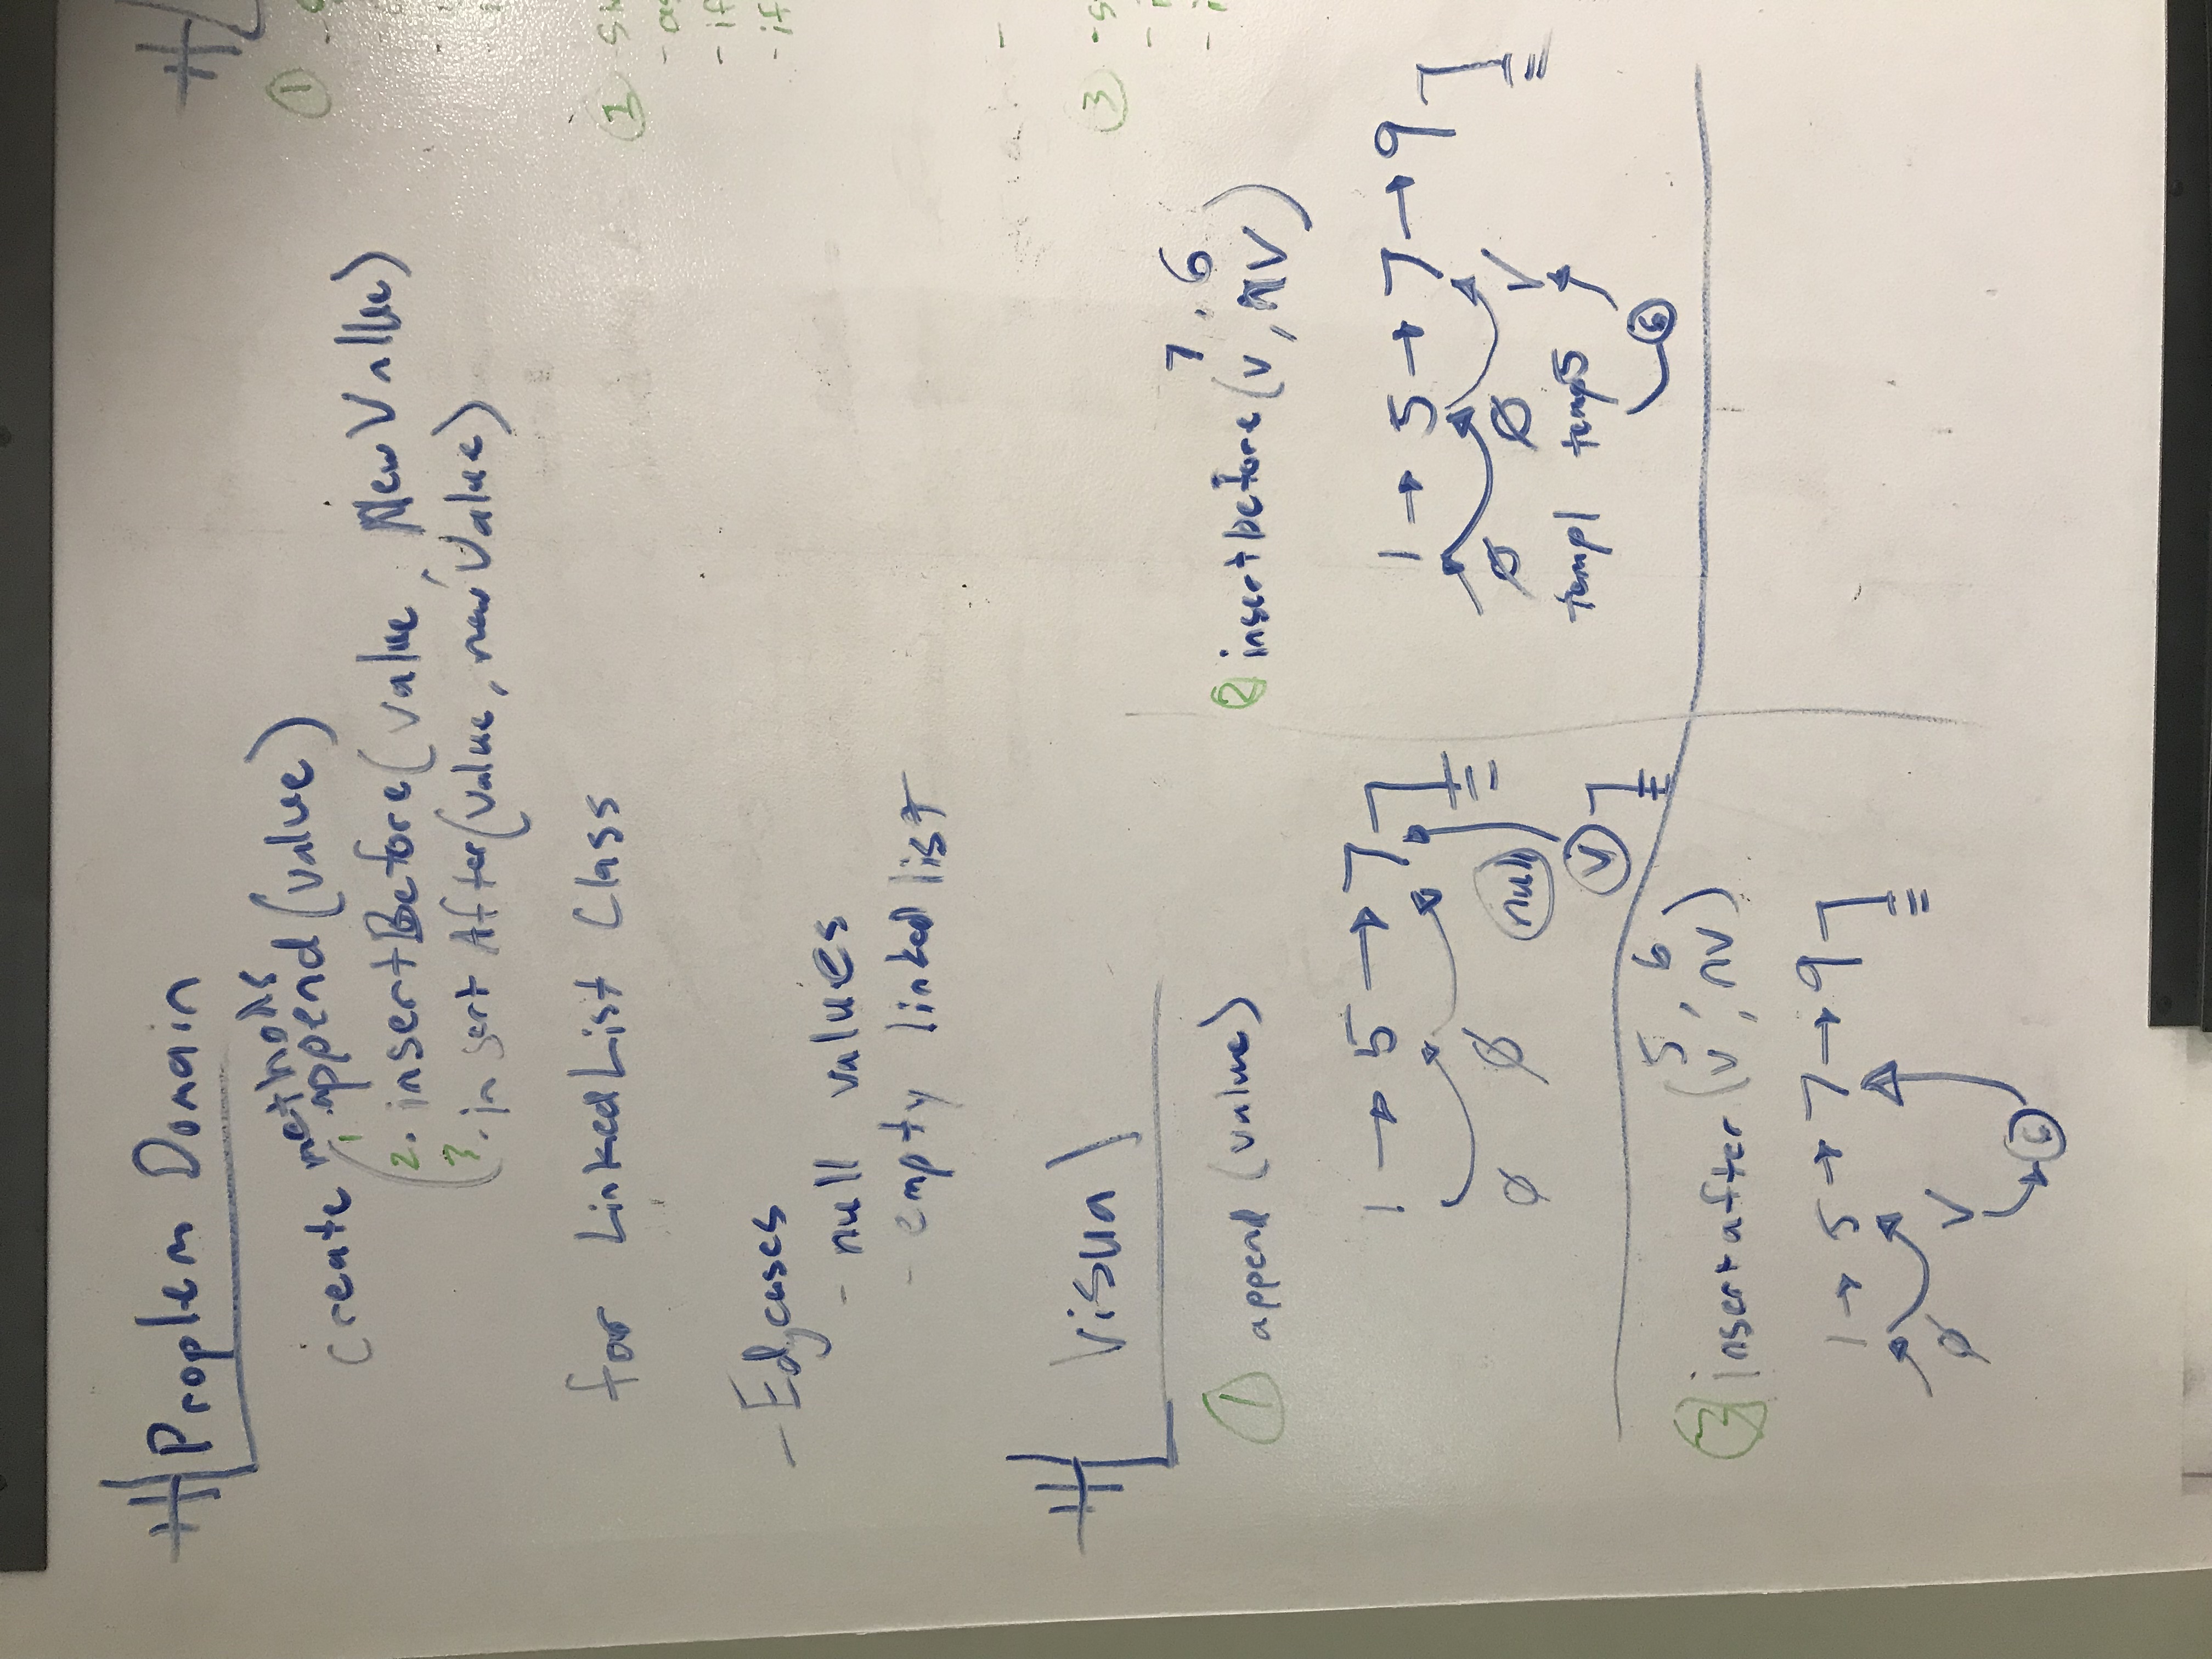 # Proplem Domain
create methods
1. append (value)
2. insertBefore( value, NewValue)
3. insert After(value, newValue)
for LinkedList Class
- Edgcases
- null values
- empty linked list
# Visual
1 append (value)
1 → 5 → 7
∅ ∅ null
v
2 insertbefore (v, nv)
7, 6
1 → 5 → 7 → 9
∅ ∅ v
temp1 temp5
6
3 insertafter (v, nv)
5, 6
1 → 5 → 7 → 9
∅ v
6
#
1
2
- if
- if
3